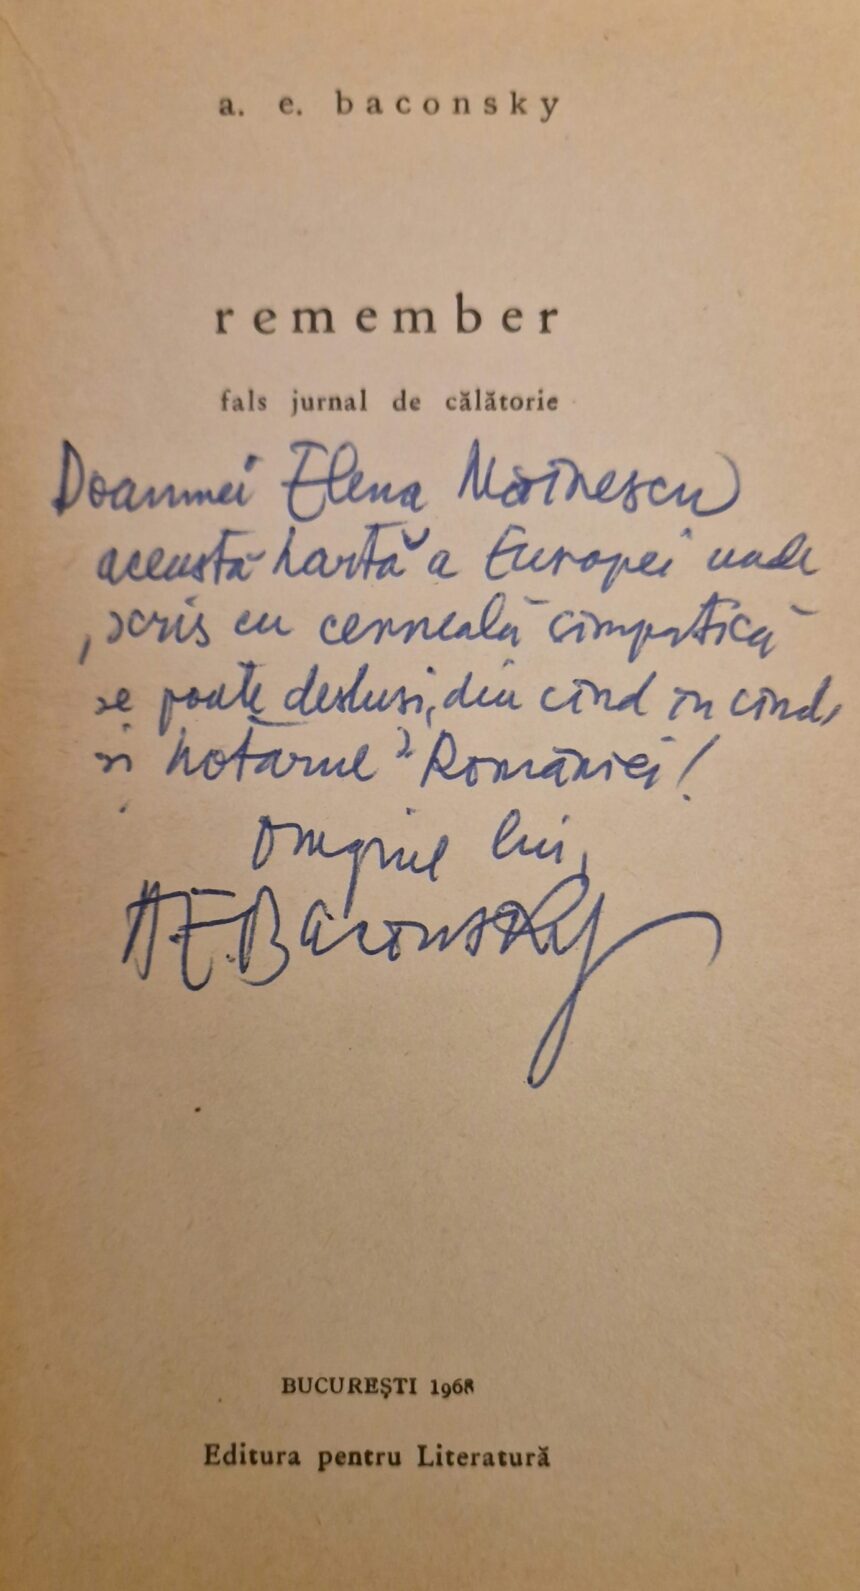 a. e. baconsky
remember
fals jurnal de călătorie
Doamnei Elena
această hartă a Europei unde
, scris cu cerneală simpatică
se poate desluși, din cînd în cînd,
și hotarul României!
Omagiul lui,
A.E. Baconsky
BUCUREȘTI 1968
Editura pentru Literatură